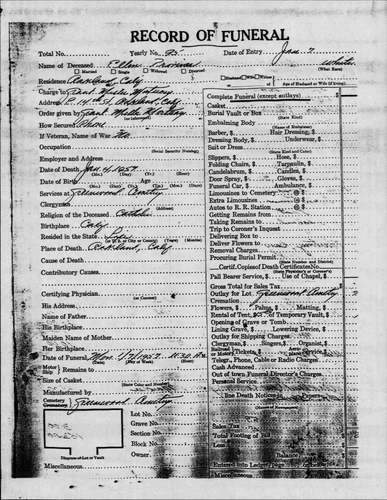 RECORD OF FUNERAL
Total No. Yearly No. Date of Entry Jan. 7
Name of Deceased Ellen White
Married Single Widowed Divorced (What Race)
Residence Oakland, Calif Husband Wife Widow
Age of Husband or Wife (if living)
Charge to Paul Miller Mortuary
Address E. 14th St, Oakland, Calif
Order given by Paul Miller Mortuary
How Secured
If Veteran, Name of War No.
Occupation
(Social Security Number)
Employer and Address
Date of Death Jan. 4, 1957
Date of Birth Age
Services at Greenwood Cemetery
Clergyman
Religion of the Deceased Catholic
Birthplace Calif
Resided in the State Life
(or U.S. or City or County) (Years) (Months)
Place of Death Oakland, Calif
Cause of Death
Contributory Causes
Certifying Physician
(or Coroner)
His Address
Name of Father
His Birthplace
Maiden Name of Mother
Her Birthplace
Date of Funeral Mon. 1/7/1957 11:30 A.M.
Motor Ship Remains to
Size of Casket
(State Color and No.)
Manufactured by
Cemetery Crematory Greenwood Cemetery
Lot No.
Grave No.
Section No.
Block No.
Owner
Diagram of Lot or Vault
Miscellaneous
Complete Funeral (except outlays) $
Casket
Burial Vault or Box
(State Kind)
Embalming Body
(State Kind of Chemicals)
Barber, $ Hair Dressing, $
Dressing, $ Underwear, $
Suit or Dress
(State Kind and Color)
Slippers, $ Hose, $
Folding Chairs, $ Tarpaulin, $
Candelabrum, $ Candles, $
Door Spray, $ Gloves, $
Funeral Car, $ Ambulance, $
Limousines to Cemetery @ $
Extra Limousines @ $
Autos to R. R. Station @ $
Getting Remains from
Taking Remains to
Trip to Coroner's Inquest
Delivering Box to
Deliver Flowers to
Removal Charges
Procuring Burial Permit
Certif. Copies of Death Certificates No.
(State Physician's or Coroner's)
Pall Bearer Service, $ Use of Chapel, $
Gross Total for Sales Tax $
Outlay for Lot Greenwood Cemetery
Cremation
Flowers, $ Palms, $ Matting, $
Rental of Tent, $ of Temporary Vault, $
Opening of Grave or Tomb
Lining Grave, $ Lowering Device, $
Outlay for Shipping Charges
Clergyman, $ Singers, $ Organist, $
Railroad or Motor Tickets, $
Telegr., Phone, Cable or Radio Charges
Cash Advanced
Out of town Funeral Director's Charges
Personal Service
line Death Notices
(Names of Papers)
Sales Tax
Total Footing of Bill $
Entered into Ledger